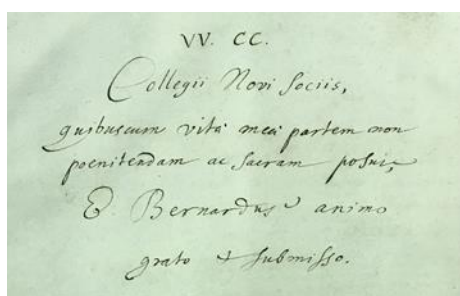 VV. CC.
Collegii Novi Sociis,
quibuscum vitæ meæ partem non
poenitendam ac sacram posui,
E. Bernardus animo
grato & submisso.